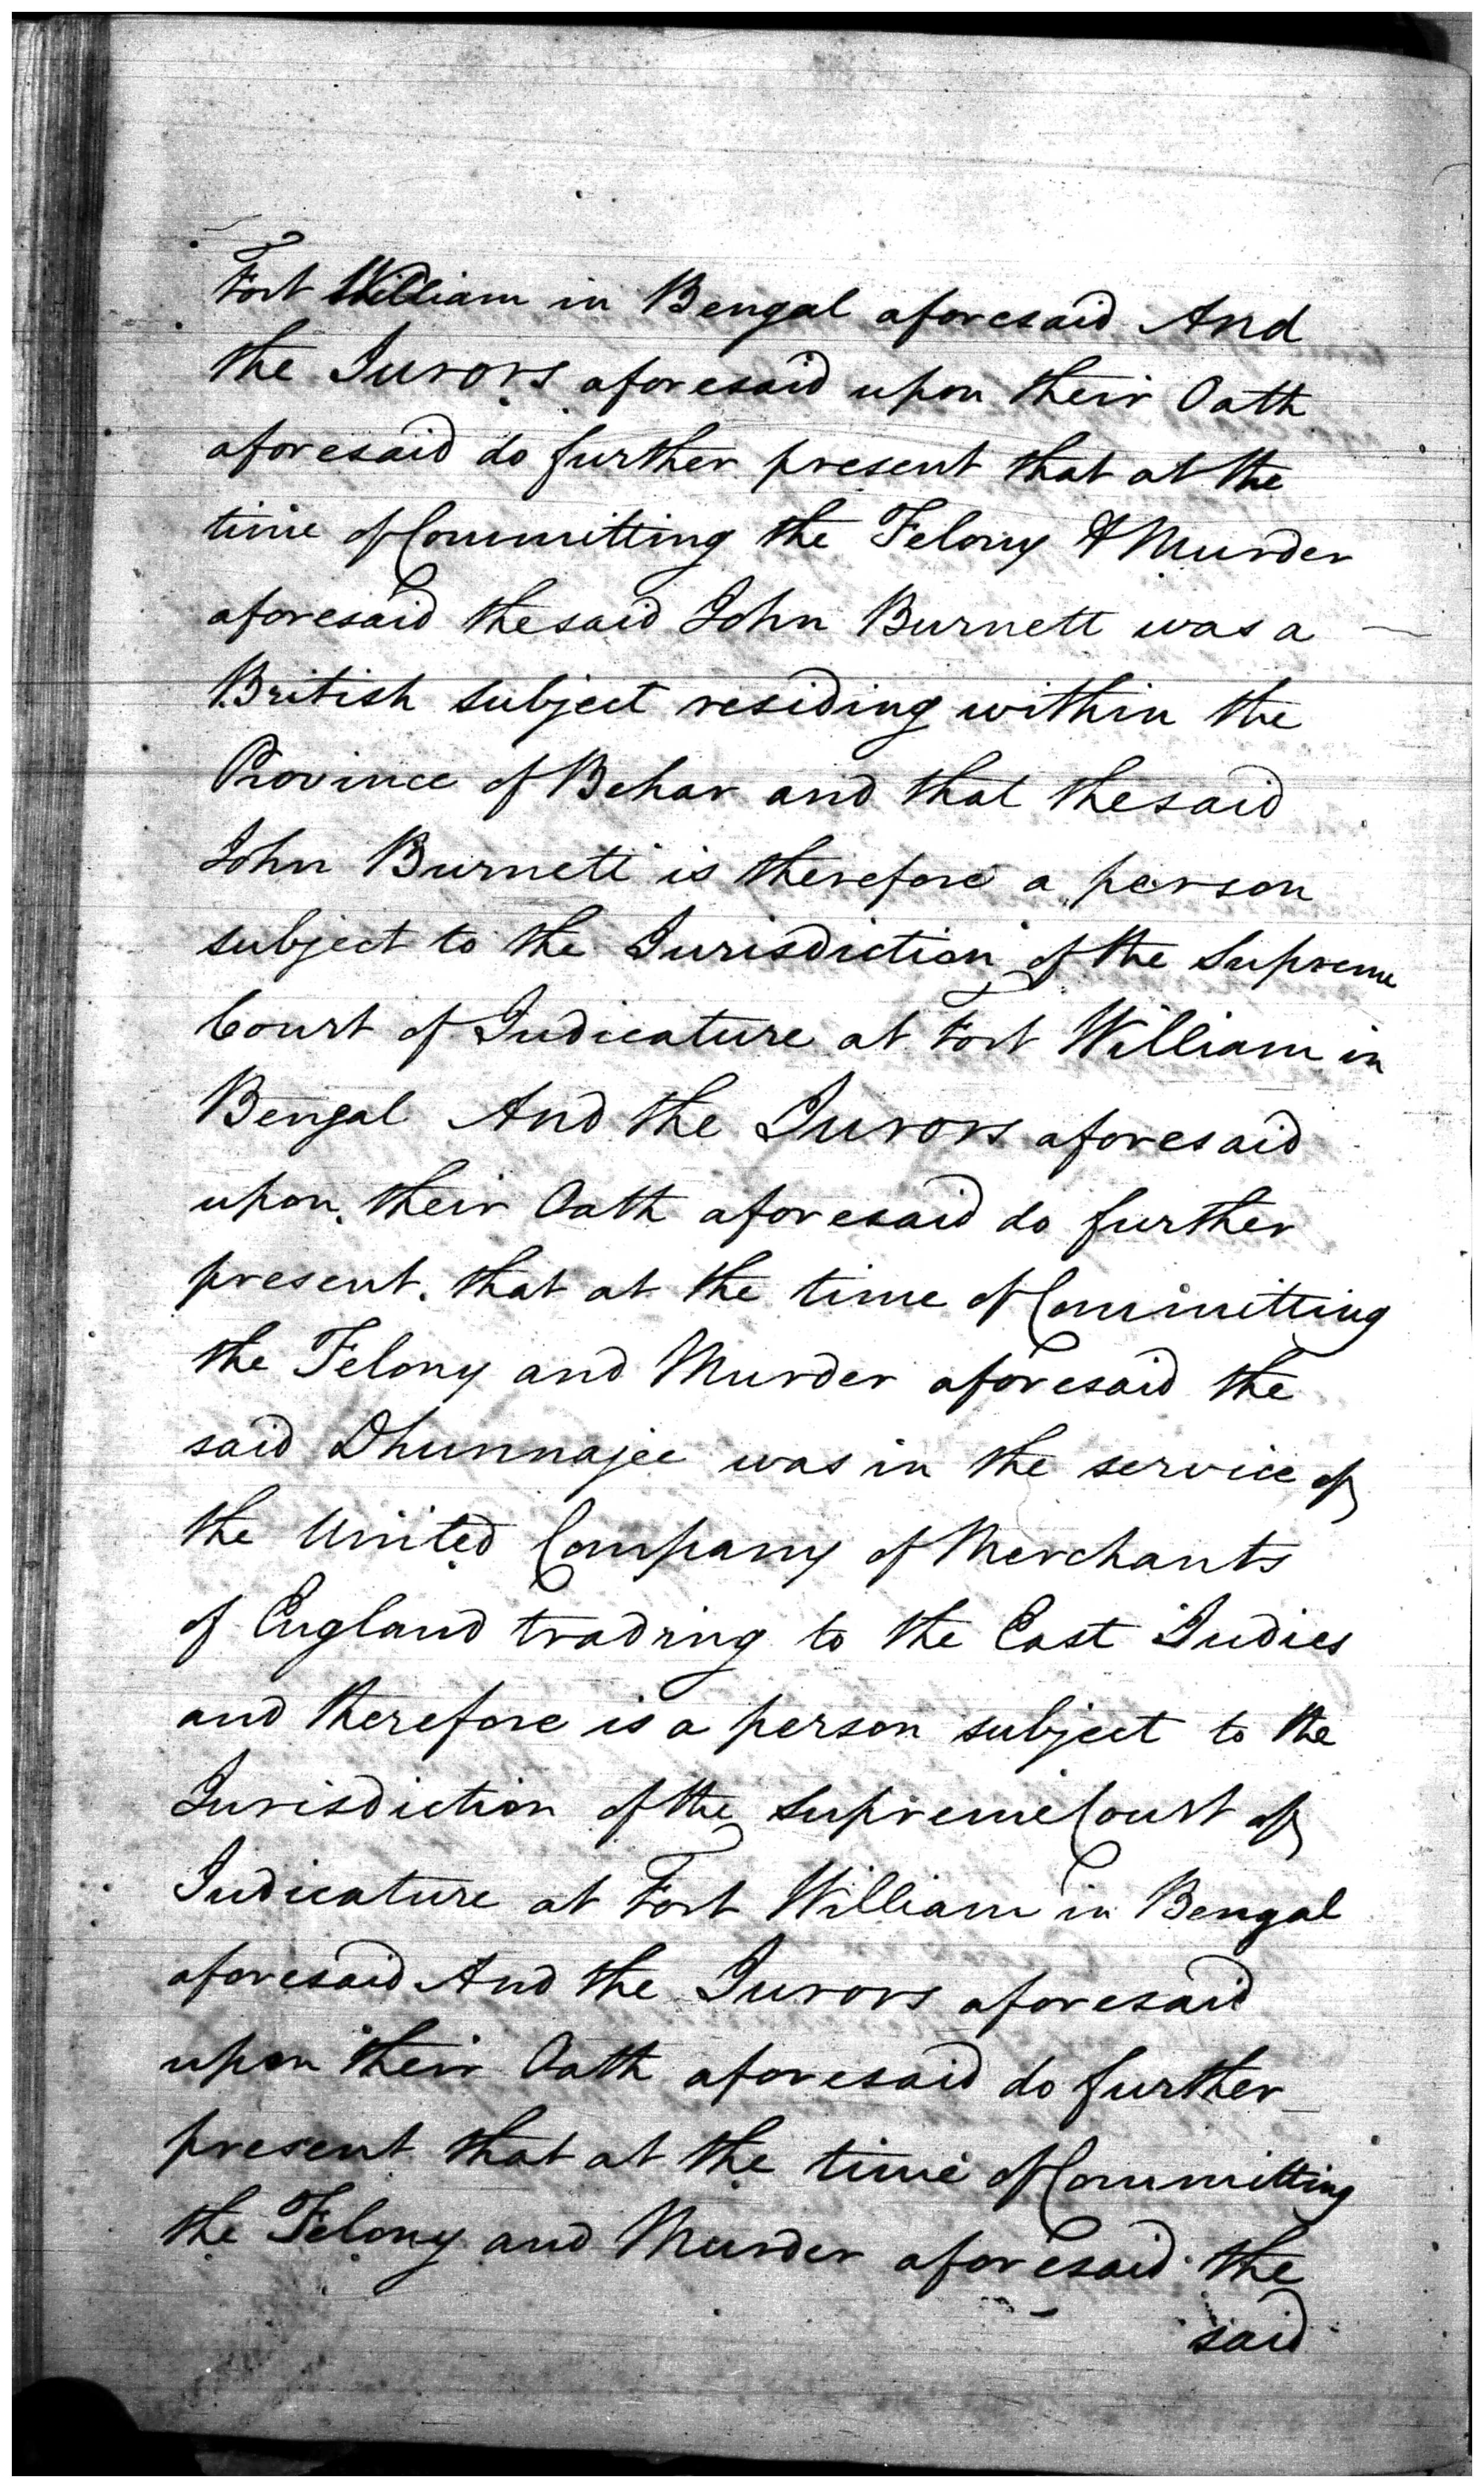 Fort William in Bengal aforesaid And
the Jurors aforesaid upon their Oath
aforesaid do further present that at the
time of Committing the Felony & Murder
aforesaid the said John Burnett was a
British subject residing within the
Province of Behar and that the said
John Burnett is therefore a person
subject to the Jurisdiction of the Supreme
Court of Judicature at Fort William in
Bengal And the Jurors aforesaid
upon their Oath aforesaid do further
present. that at the time of Committing
the Felony and Murder aforesaid the
said Dhunnajee was in the service of
the United Company of Merchants
of England trading to the East Indies
and therefore is a person subject to the
Jurisdiction of the Supreme Court of
Judicature at Fort William in Bengal
aforesaid And the Jurors aforesaid
upon their Oath aforesaid do further
present that at the time of Committing
the Felony and Murder aforesaid the
said